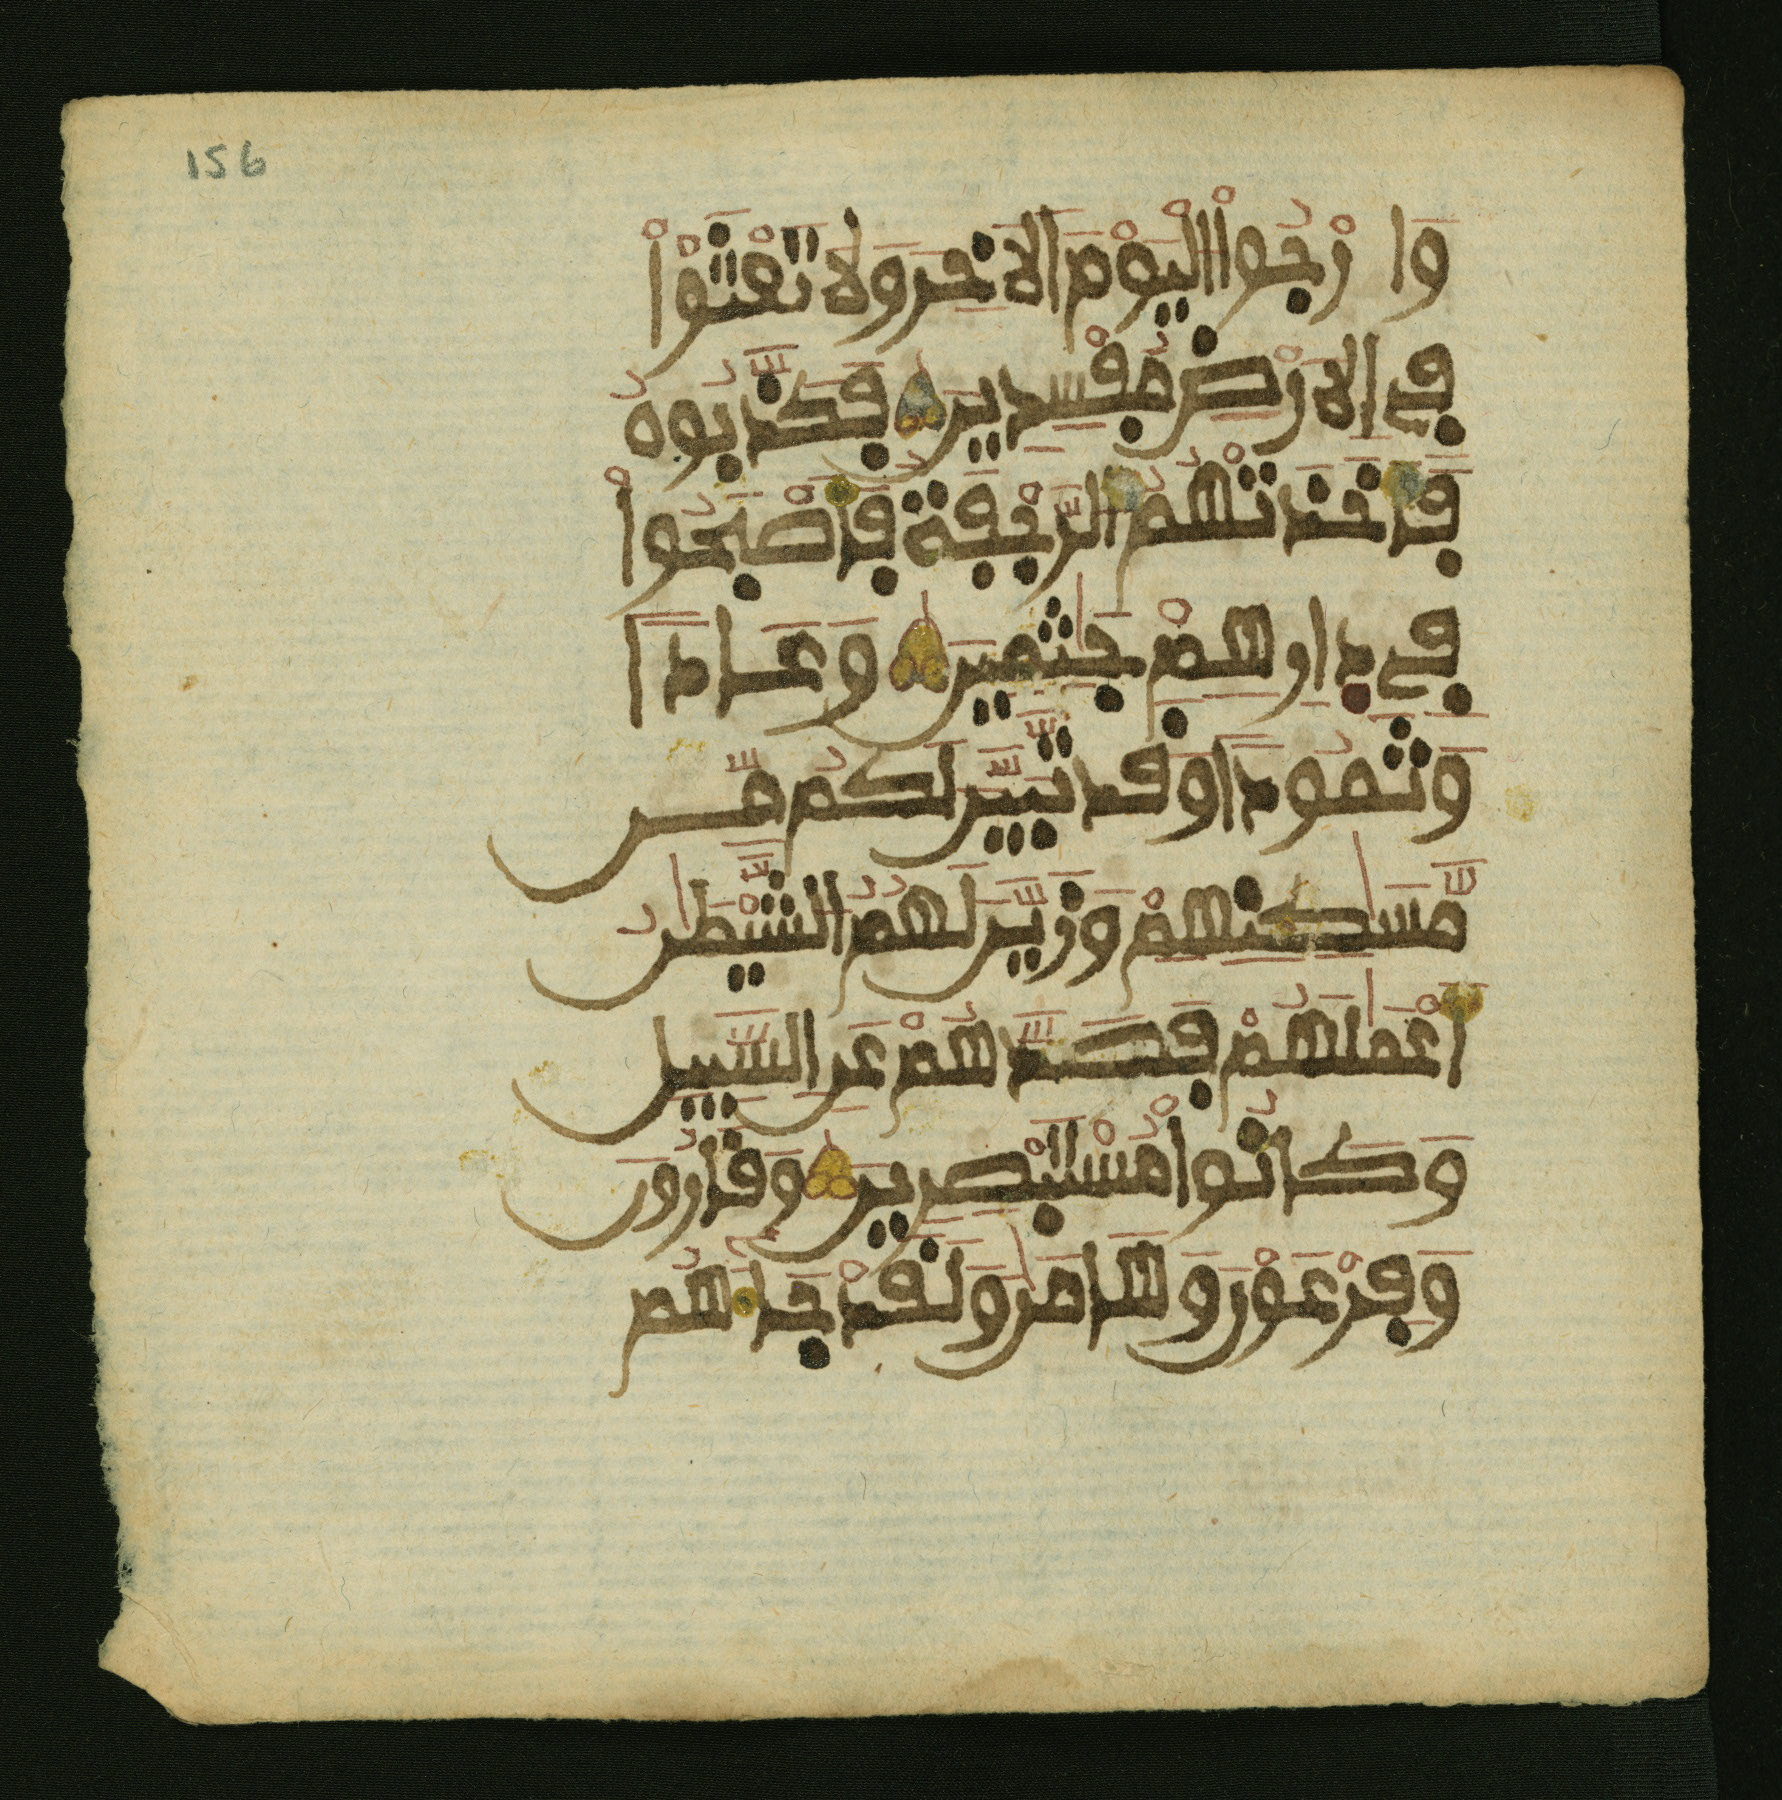 156
وَا رْجُواْ اُ۬لْيَوْمَ اَ۬لَاخِرَ وَلَا تَعْثَوْاْ
فِے اِ۬لَارْضِ مُفْسِدِينَ فَكَذَّبُوهُ
فَأَخَذَتْهُمُ اُ۬لرَّجْفَةُ فَأَصْبَحُواْ
فِے دِارِهِمْ جَٰثِمِينَ وَعَاداٗ
وَثَمُوداٗ وَقَد تَّبَيَّنَ لَكُم مِّن
مَّسَٰكِنِهِمْ وَزَيَّنَ لَهُمُ اُ۬لشَّيْطَٰنُ
أَعْمَٰلَهُمْ فَصَدَّهُمْ عَنِ اِ۬لسَّبِيلِ
وَكَانُواْ مُسْتَبْصِرِينَ وَقَٰرُونَ
وَفِرْعَوْنَ وَهَامَٰنَ وَلَقَدْ جَآءَهُم